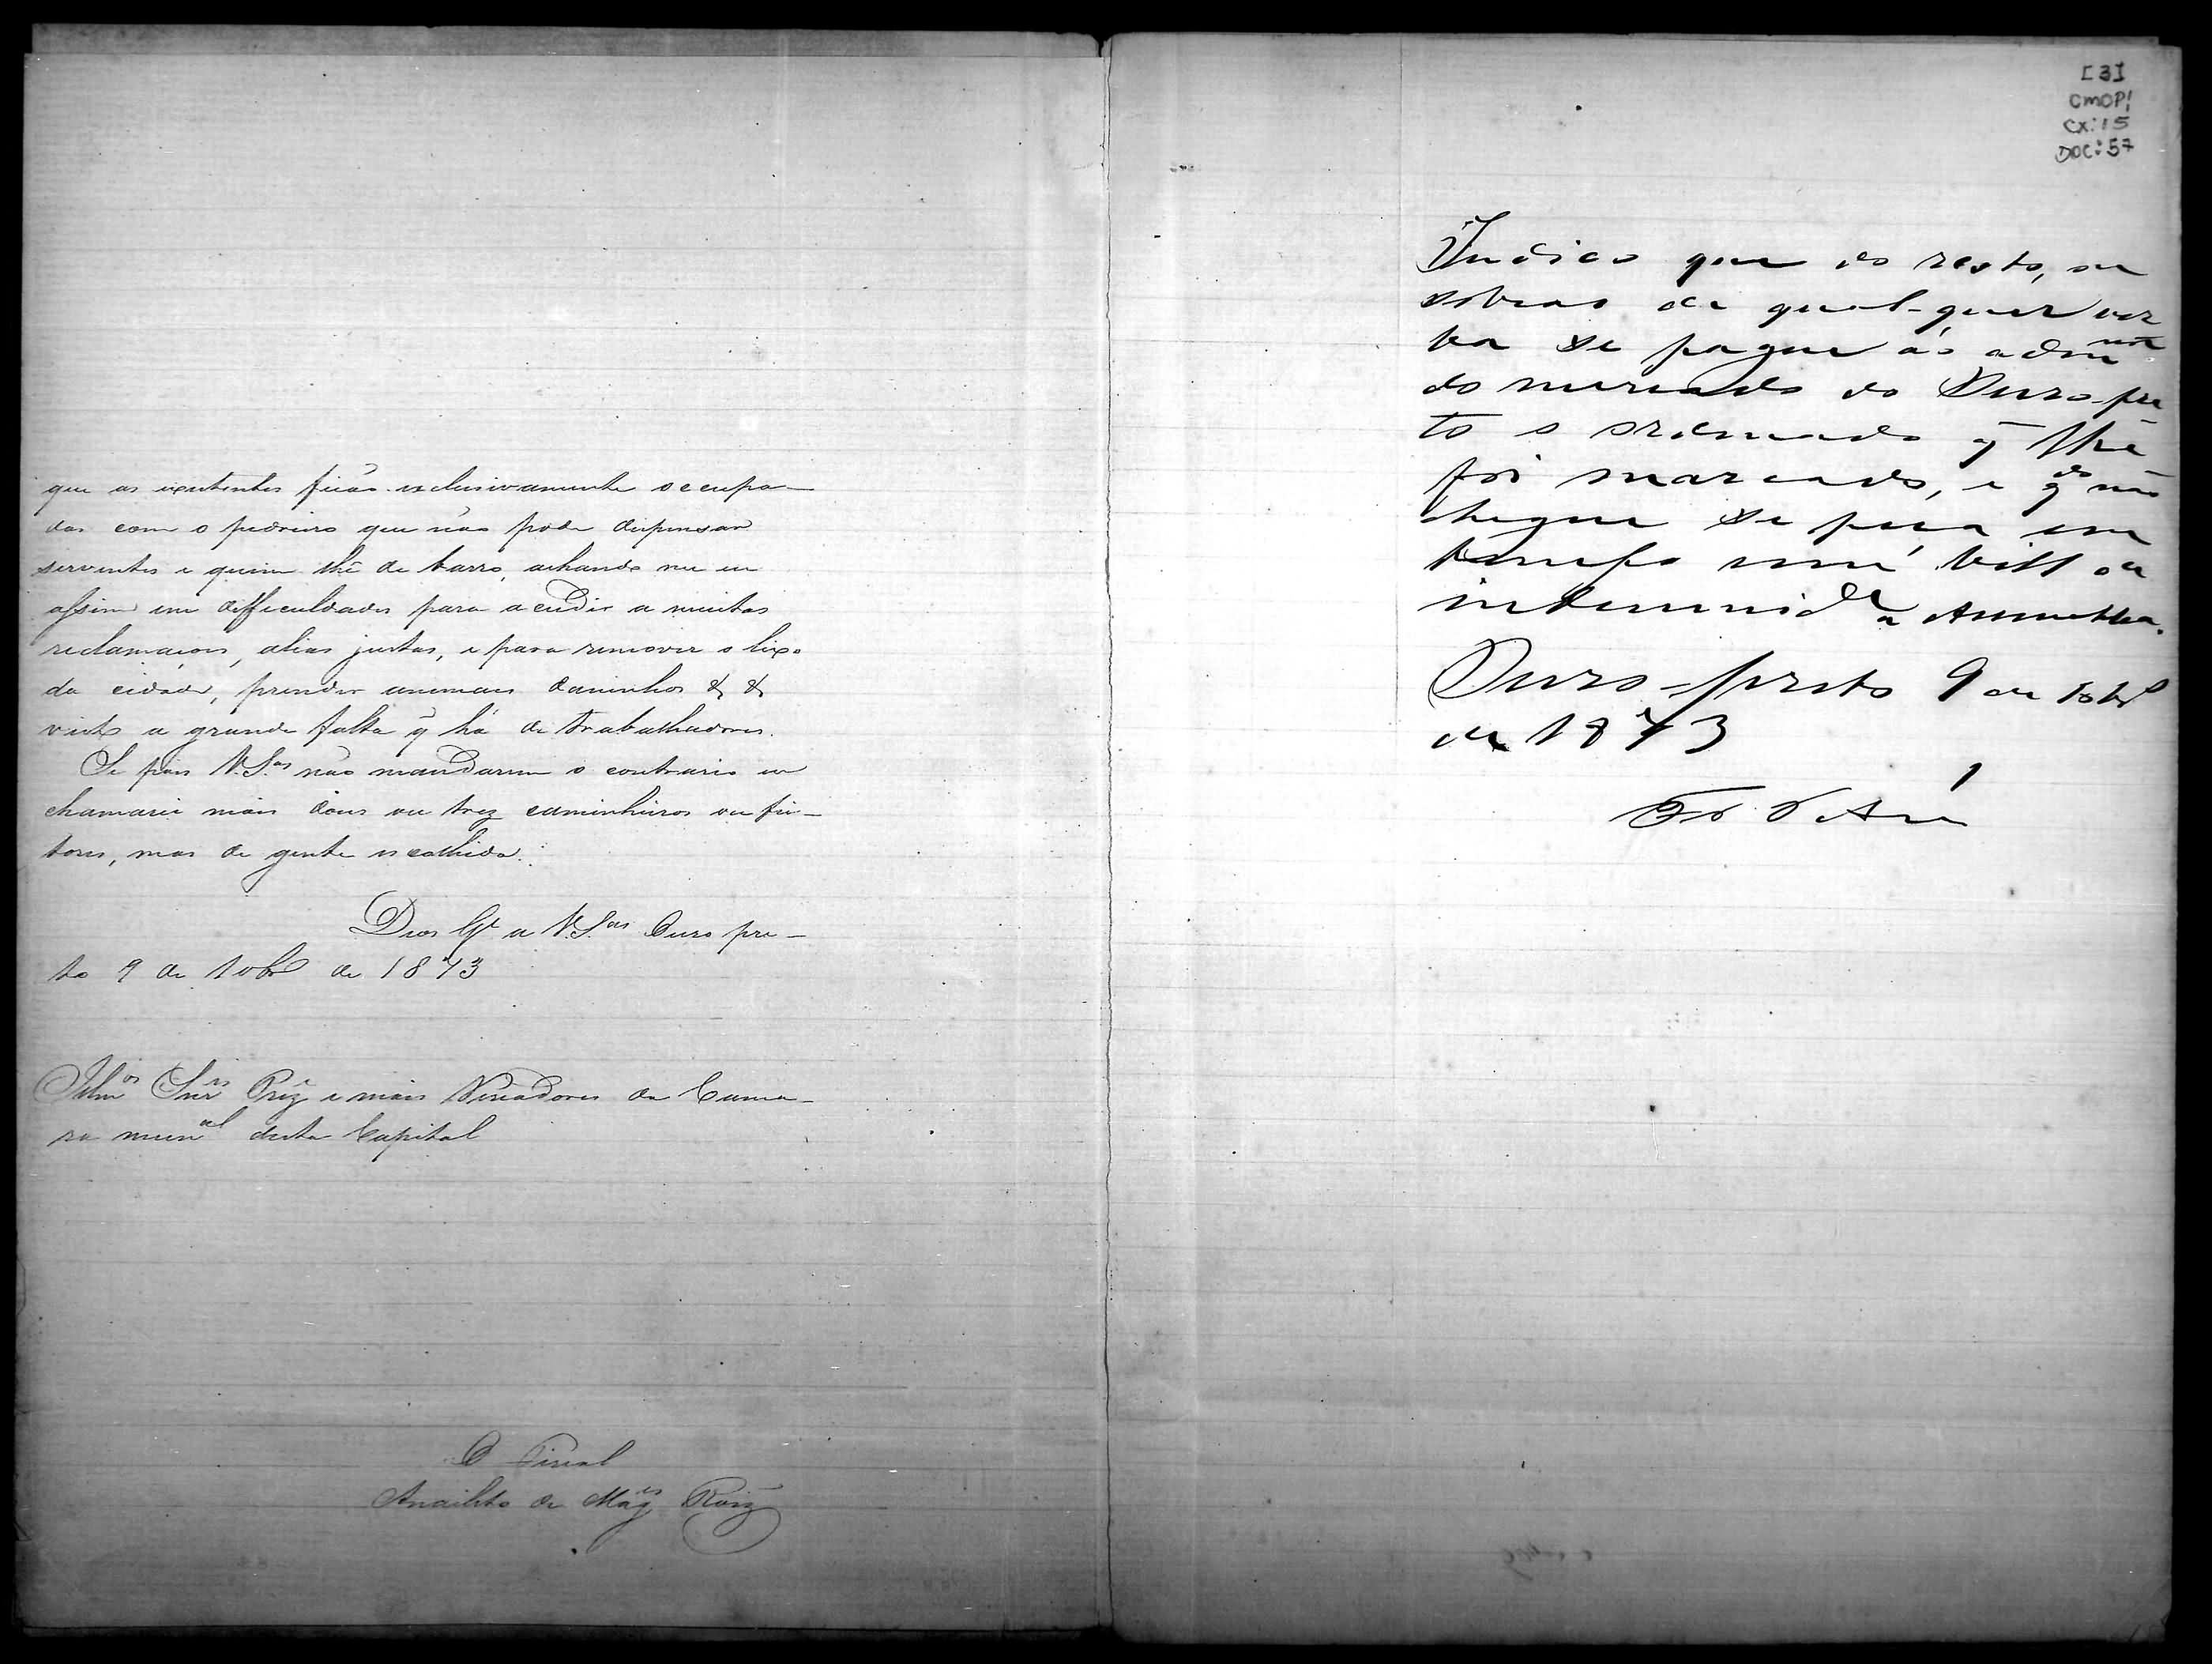 que os existentes ficão exclusivamente occupa-
dos com o pedreiro que não pode dispensar
serventes e quem lhe dê barro, achando me eu
assim em difficuldades para acudir a muitas
reclamaçoes, alias justas, e para remover o lixo
da cidade, prender animaes daninhos & &
visto a grande falta q̃ há de trabalhadores.
Se pois V. S.as não mandarem o contrario eu
chamarei mais dous ou trez caminheiros ou fei-
tores, mas de gente escolhida.
Deos G.e a V. S.as Ouro pre-
to 9 de 10br.o de 1873
Illm.os Snr.es Prez.e e mais Vereadores da Cama-
ra mun.al desta Capital
O Fiscal
Anacleto de Mag.es Roiz
[3]
CMOP!
CX: 15
DOC: 57
Indico que do resto, ou
sobras de qual-quer ver
ba se pague ao adm
do mercado do Ouro-pre
to o ordenado q̃ lhe
foi marcado, e q.do não
chegue se peça em
tempo um bill de
indemnid.e a Assembléa.
Ouro-preto 9 de 10br.o
de 1873